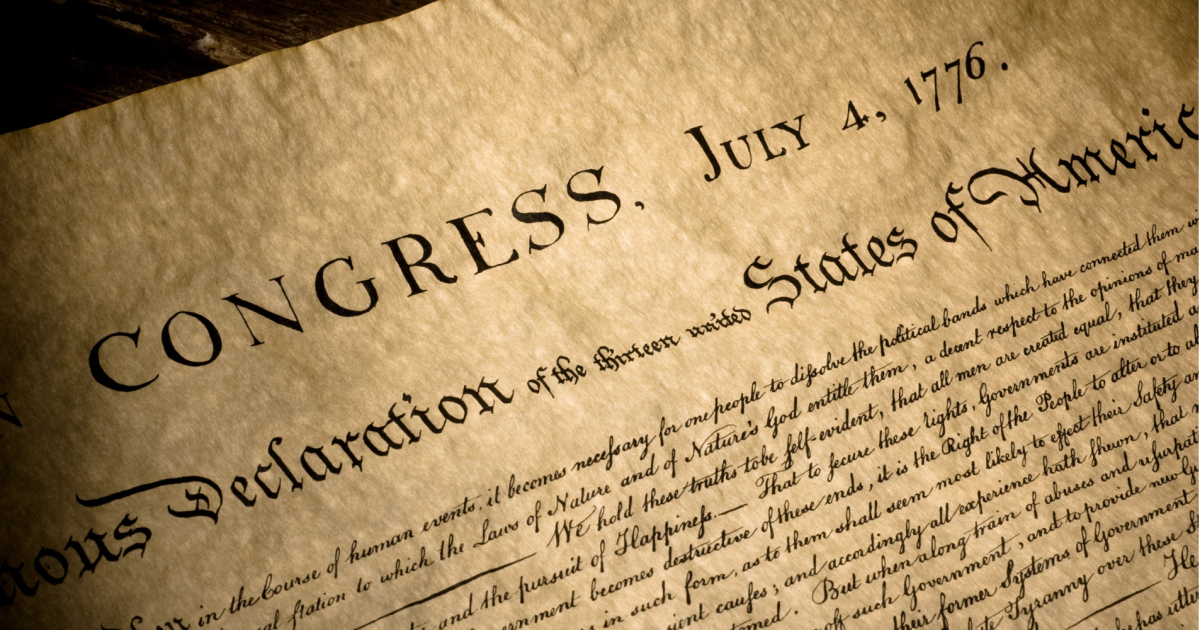 N CONGRESS, JULY 4, 1776.
mous Declaration of the thirteen united States of Americ
in the Course of human events, it becomes necessary for one people to dissolve the political bands which have connected them w
station to which the Laws of Nature and of Nature's God entitle them, a decent respect to the opinions of ma
We hold these truths to be self-evident, that all men are created equal, that they
and the pursuit of Happiness.— That to secure these rights, Governments are instituted a
ernment becomes destructive of these ends, it is the Right of the People to alter or to ab
in such form, as to them shall seem most likely to effect their Safety an
causes; and accordingly all experience hath shewn, that
But when a long train of abuses and usurpat
off such Government, and to provide new G
their former Systems of Government
Tyranny over these S
He
he has utta